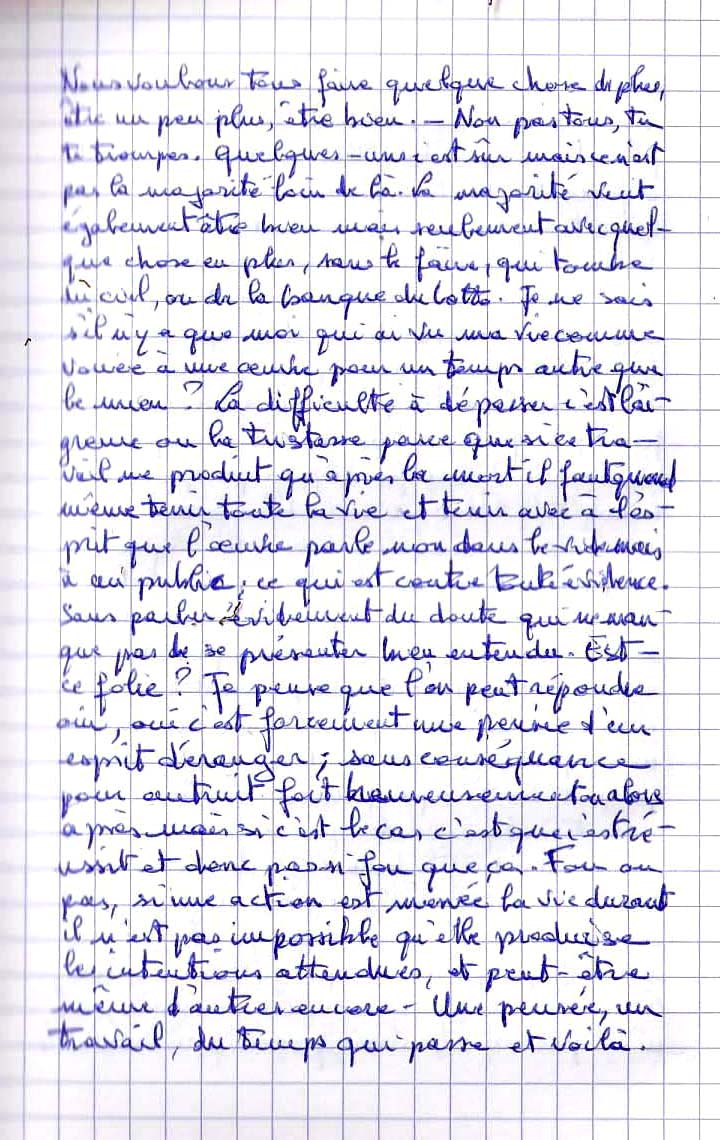 Nous voulons tous faire quelque chose de plus,
être un peu plus, être bien. — Non pas tous, tu
te trompes. Quelques-uns c'est sûr mais ce n'est
pas la majorité loin de là. La majorité veut
également être bien mais seulement avec quel-
que chose en plus, sans le faire, qui tombe
du ciel, ou de la banque du lotto. Je ne sais
s'il n'y a que moi qui ai vu ma vie comme
vouée à une oeuvre pour un temps autre que
le mien ? La difficulté à dépasser c'est l'ai-
greur ou la tristesse parce que si ce tra-
vail ne produit qu'après la mort il faut quand
même tenir toute la vie et tenir avec à l'es-
prit que l'oeuvre parle non dans le vide mais
à un public, ce qui est contre toute évidence.
Sans parler évidemment du doute qui ne man-
que pas de se présenter bien entendu. Est-
ce folie ? Je pense que l'on peut répondre
oui, oui c'est forcément une pensée d'un
esprit déranger ; sans conséquance
pour autruit fort heureusement ou alors
après mais si c'est le cas c'est que c'est ré-
ussit et donc pas si fou que ça. Fou ou
pas, si une action est menée la vie durant
il n'est pas impossible qu'elle produise
les intentions attendues, et peut-être
même d'autres encore - Une pensée, un
travail, du temps qui passe et voilà.